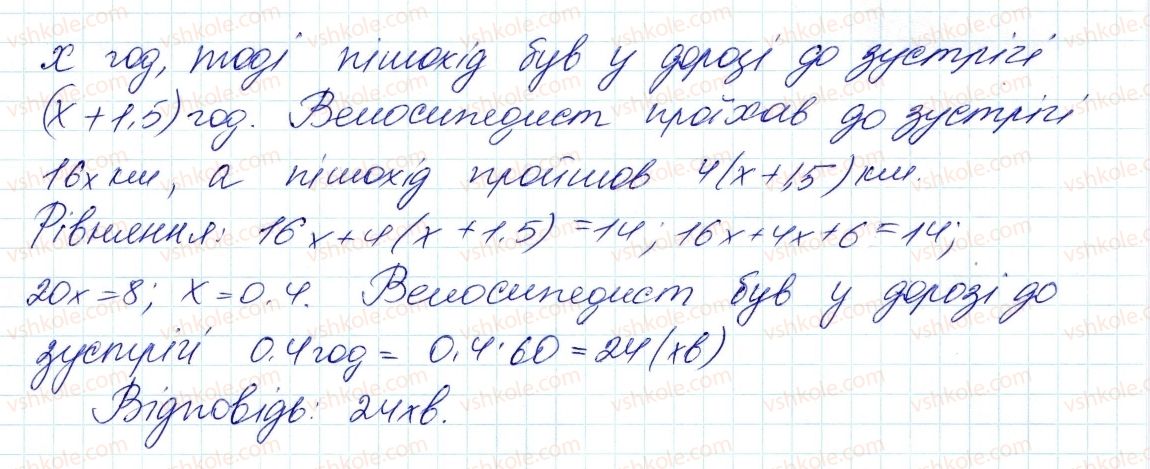 x год, тоді пішохід був у дорозі до зустрічі
(x + 1,5) год. Велосипедист проїхав до зустрічі
16x км, а пішохід пройшов 4(x + 1,5) км.
Рівняння: 16x + 4(x + 1,5) = 14; 16x + 4x + 6 = 14;
20x = 8; x = 0,4. Велосипедист був у дорозі до
зустрічі 0,4 год = 0,4 · 60 = 24 (хв)
Відповідь: 24 хв.